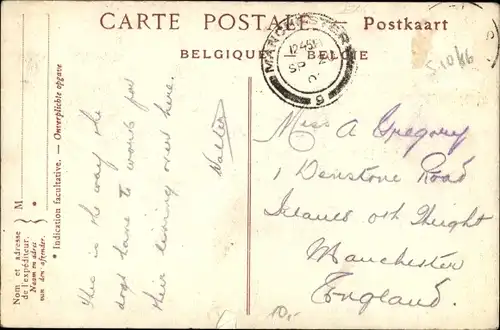 CARTE POSTALE — Postkaart
BELGIQUE BELGIË
MANCHESTER
12 45 PM
SP
9
5 10/16
Nom et adresse
de l'expéditeur.
Naam en adres
van den afzender.
M
*
* Indication facultative. — Onverplichte opgave
This is the way the
dogs have to work for
their living over here.
Walter
Miss A Gregory
1 Denstone Road
Irlams oth Height
Manchester
England.
10,-